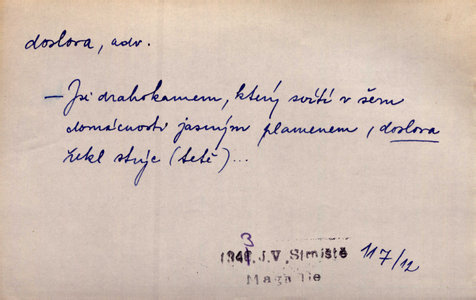 doslova, adv.
— Jsi drahokamem, který svítí v šem
domácnosti jasným plamenem, doslova
řekl strýc (tetě)...
3
1946, J.V. Strniště 117/12